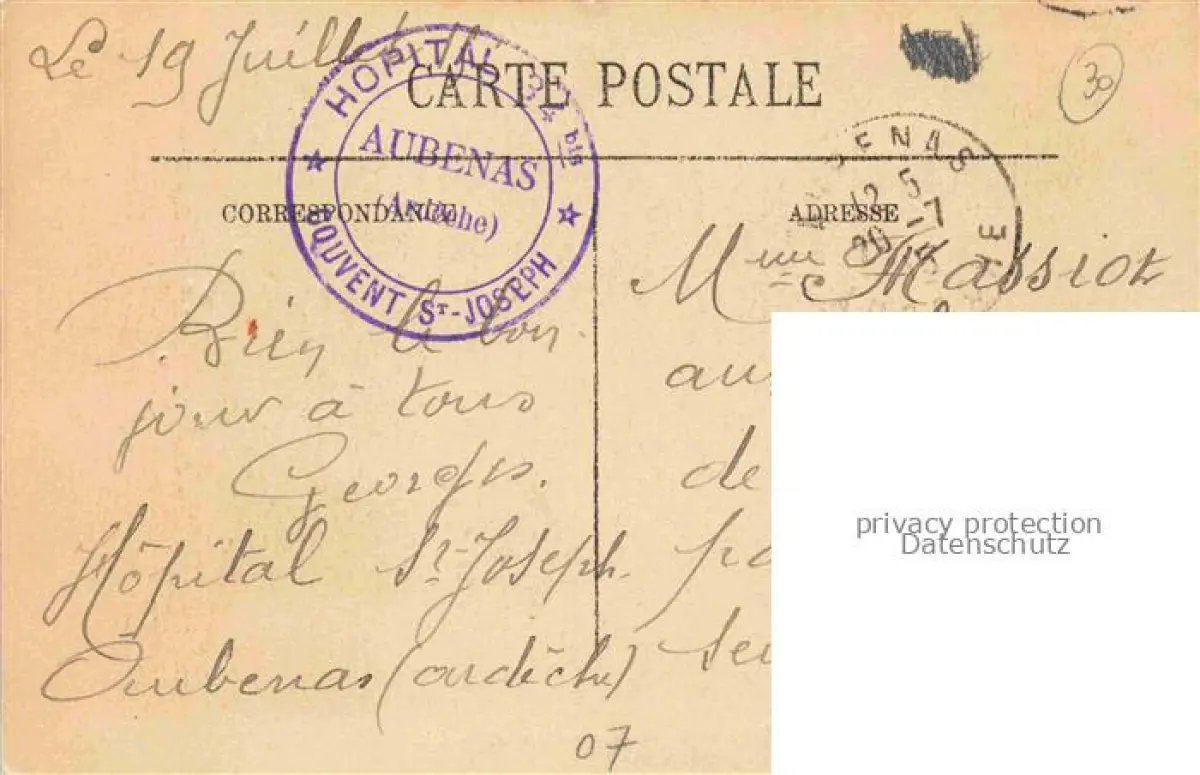 Le 19 Juillet
30
CARTE POSTALE
HOPITAL 34 bis
AUBENAS
(Ardèche)
COUVENT ST-JOSEPH
ENAS
12 5
20 -7
E
CORRESPONDANCE
ADRESSE
Mme Massiot
Bien le bon
jour à tous
Georges.
Hôpital St-Joseph.
Aubenas (ardèche)
07
au
de
pa
privacy protection
Datenschutz